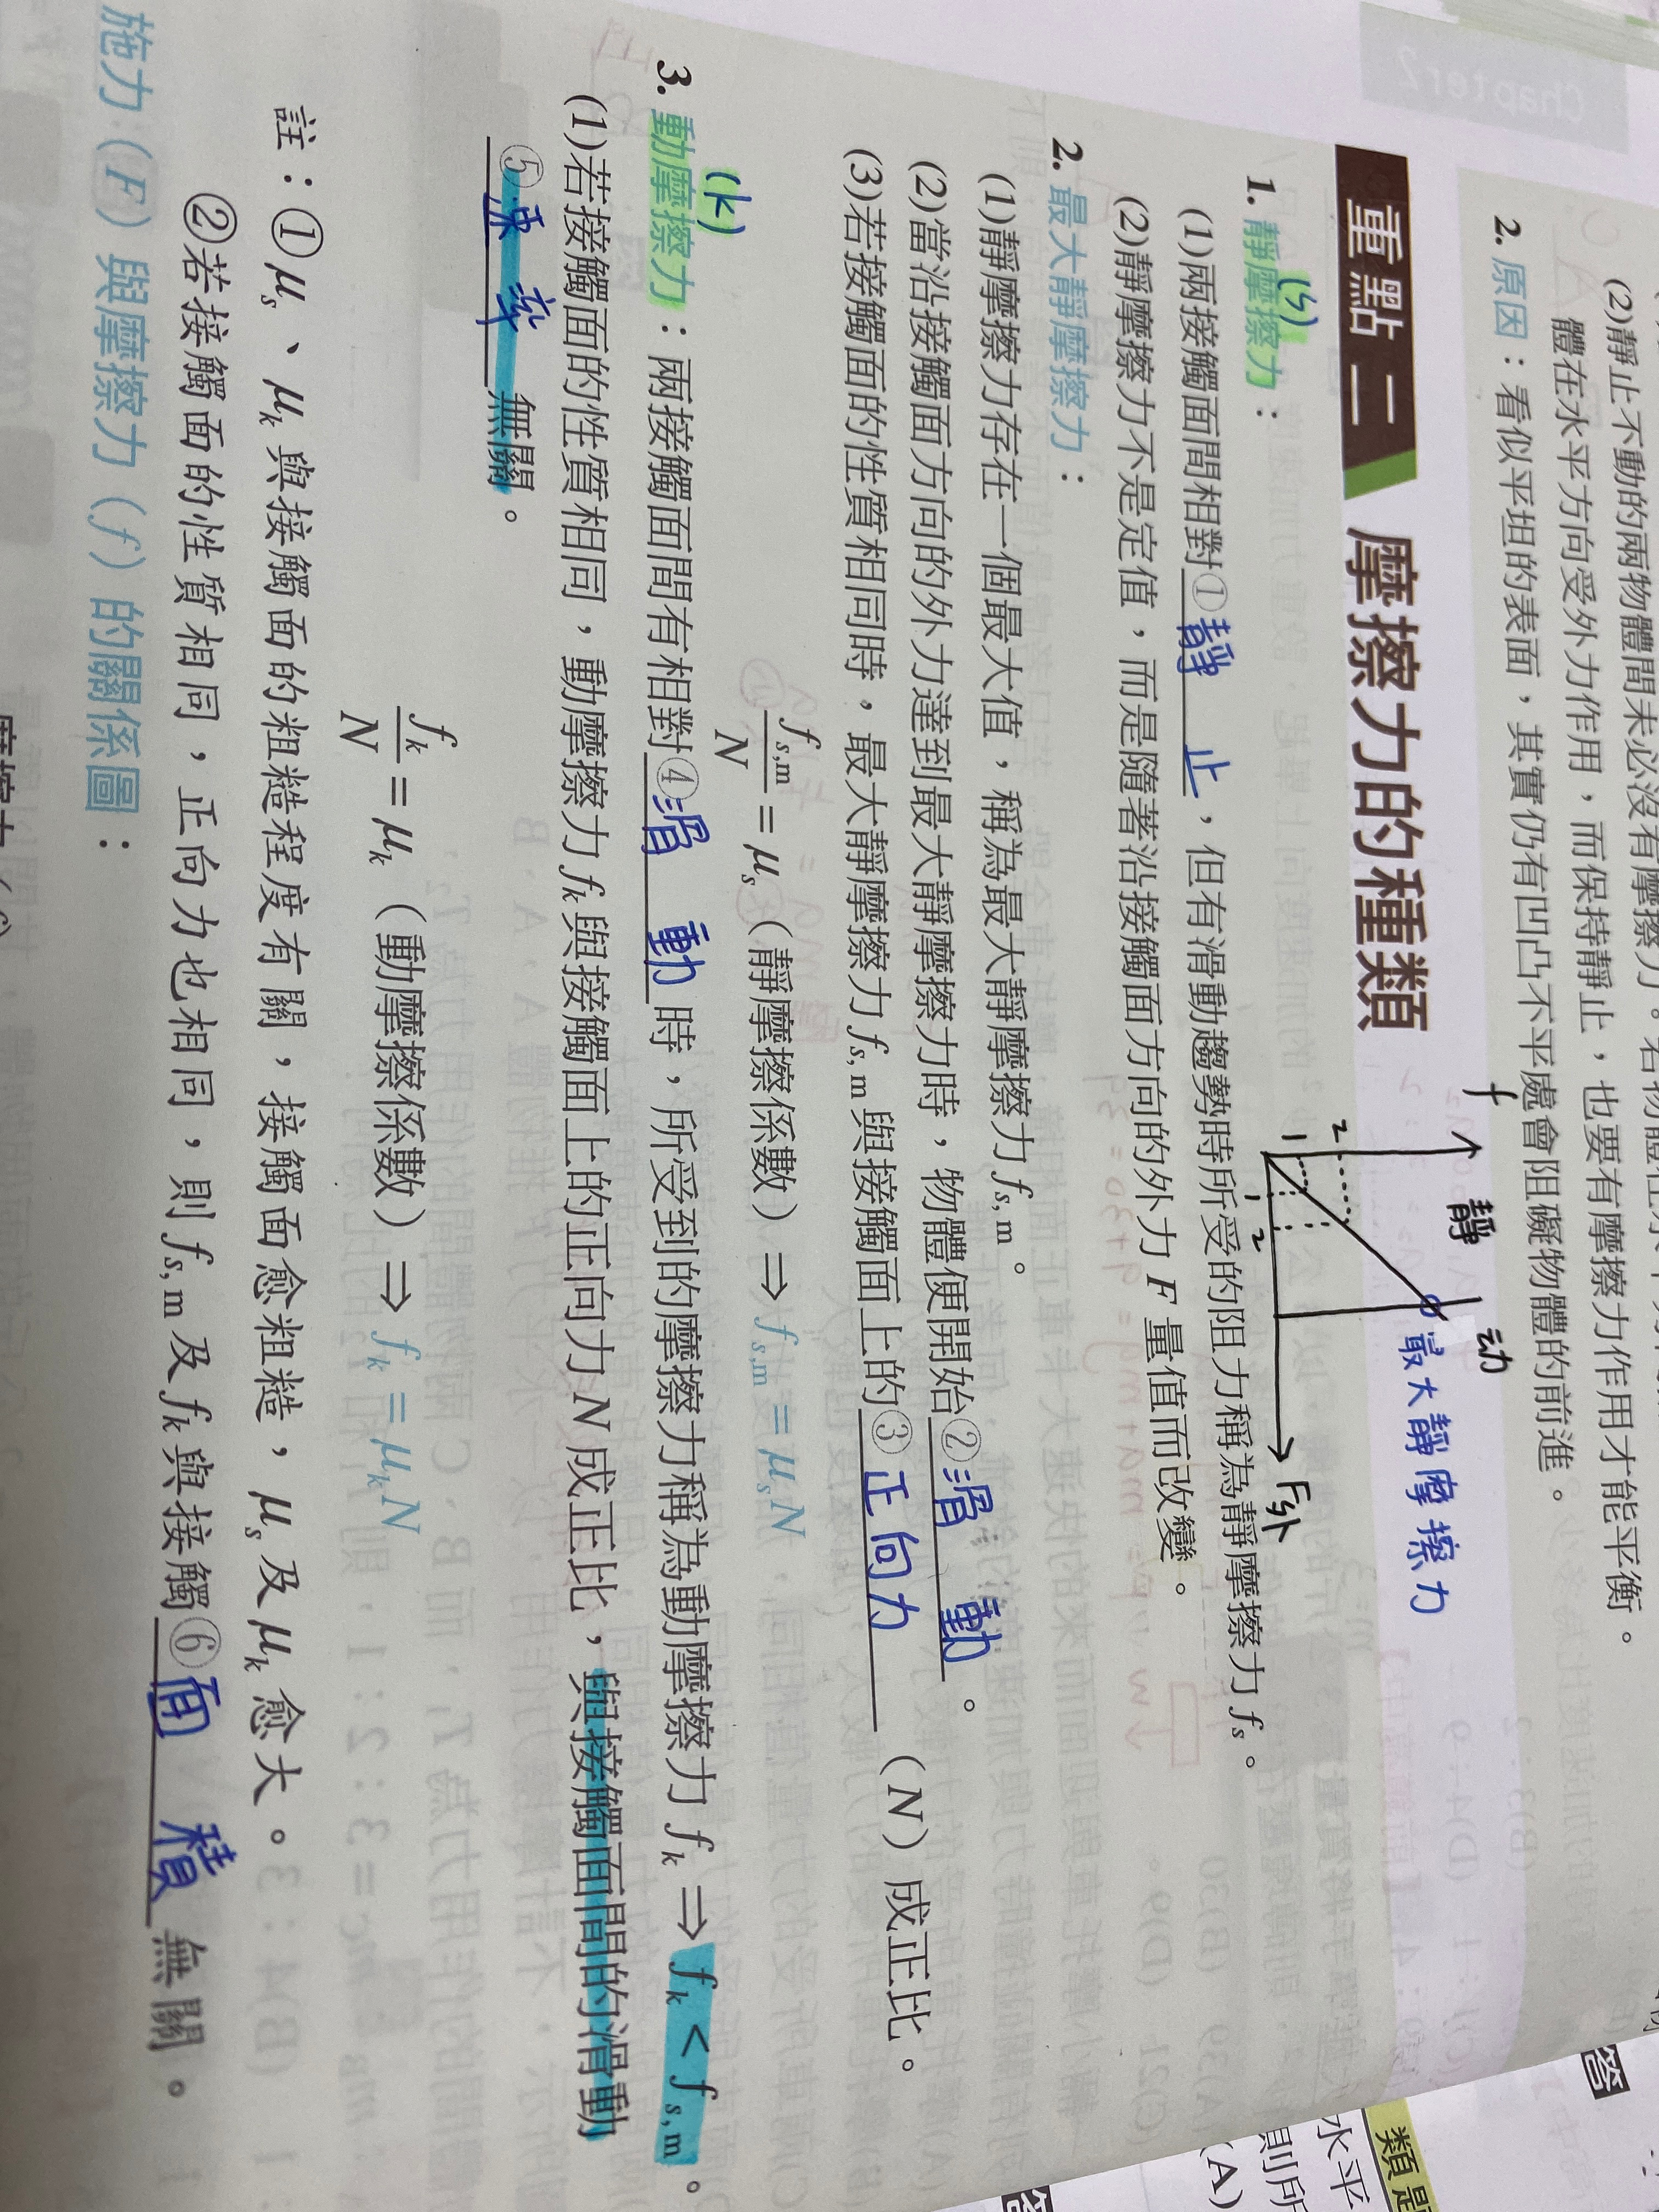 (2)靜止不動的兩物體間未必沒有摩擦力。若物體在水平
體在水平方向受外力作用，而保持靜止，也要有摩擦力作用才能平衡。
2. 原因：看似平坦的表面，其實仍有凹凸不平處會阻礙物體的前進。
f 靜 动
最大靜摩擦力
2
1
1 2
F外
重點二 摩擦力的種類
(s)
1. 靜摩擦力：
(1)兩接觸面間相對①靜 止，但有滑動趨勢時所受的阻力稱為靜摩擦力 fs。
(2)靜摩擦力不是定值，而是隨著沿接觸面方向的外力 F 量值而改變。
2. 最大靜摩擦力：
(1)靜摩擦力存在一個最大值，稱為最大靜摩擦力 fs,m。
(2)當沿接觸面方向的外力達到最大靜摩擦力時，物體便開始②滑 動。
(3)若接觸面的性質相同時，最大靜摩擦力 fs,m 與接觸面上的③正向力（N）成正比。
fs,m/N = μs（靜摩擦係數）⇒ fs,m = μsN
(k)
3. 動摩擦力：兩接觸面間有相對④滑 動時，所受到的摩擦力稱為動摩擦力 fk ⇒ fk < fs,m。
(1)若接觸面的性質相同，動摩擦力 fk 與接觸面上的正向力 N 成正比，與接觸面間的滑動
⑤速 率無關。
fk/N = μk（動摩擦係數）⇒ fk = μkN
註：①μs、μk 與接觸面的粗糙程度有關，接觸面愈粗糙，μs 及 μk 愈大。
②若接觸面的性質相同，正向力也相同，則 fs,m 及 fk 與接觸⑥面 積無關。
施力（F）與摩擦力（f）的關係圖：
答
類題
水平
則所
(A)
答